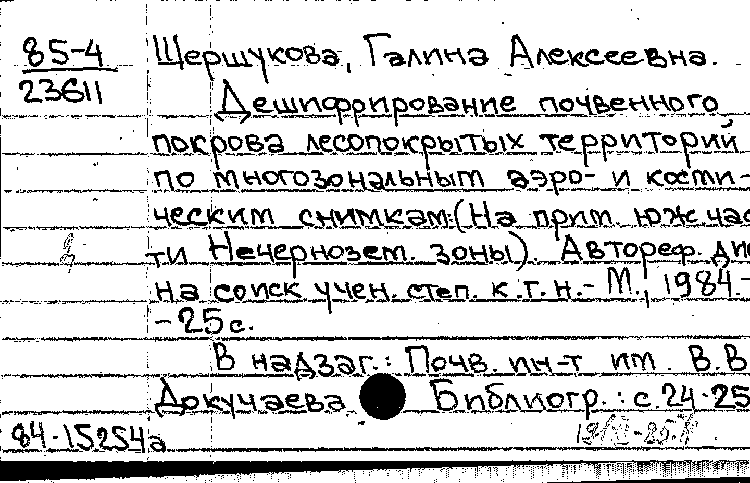 85-4 Шершукова, Галина Алексеевна.
23611 Дешифрирование почвенного
покрова лесопокрытых территорий
по многозональным аэро- и косми-
ческим снимкам: (На прим. юж. час
ти Нечернозем. зоны). Автореф. дис
на соиск учен. степ. к. г. н. - М., 1984. -
- 25 с.
В надзаг.: Почв. ин-т им. В. В
Докучаева. Библиогр.: с. 24-25
84-15254а